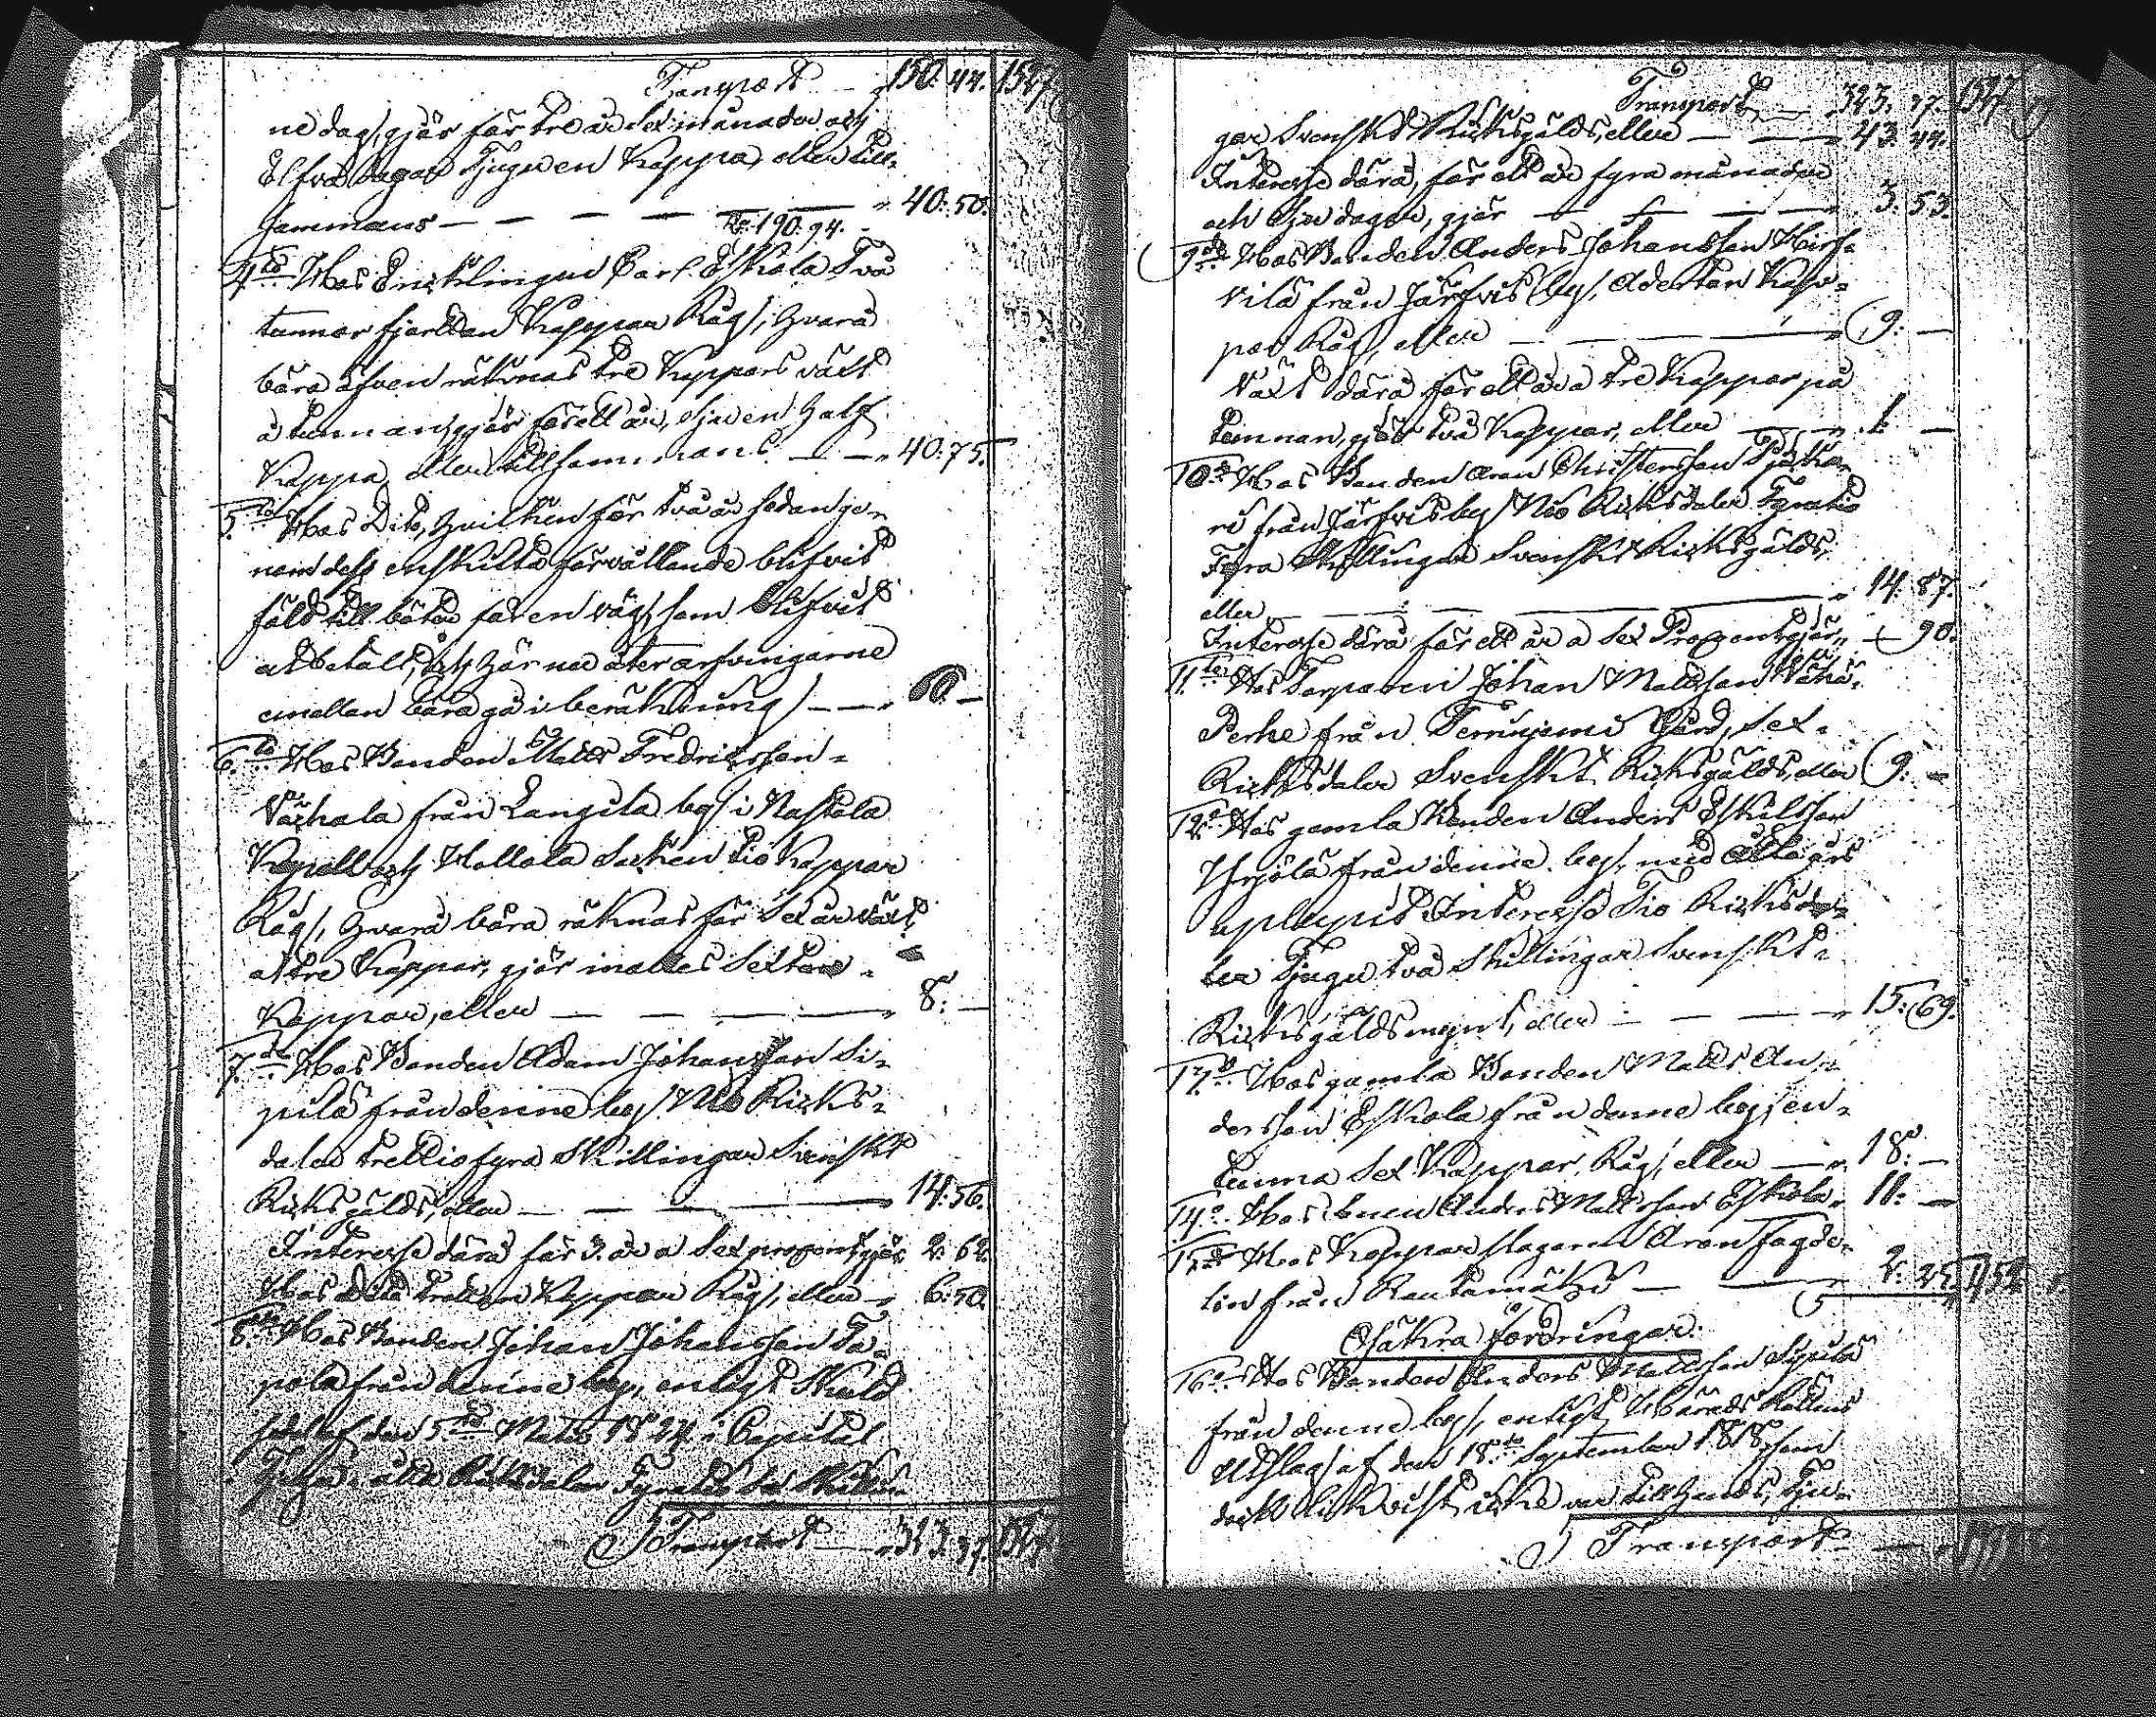 Transport — 150. 44. 1527
ne dag, gjör för tre år sex månader och
Elfva dagar Tjugu en Kappa, eller till-
sammans — — — — — 40. 50.
190. 94.
4:to Hos Enklingen Carl Eskola Två
tunnor fjorton Kappar Råg, hvarå
böra äfven räknas tre Kappars växt
å tunnan, gjör för ett år, sju en half
Kappa, eller tillsammans — — 40. 75.
5:to Hos Dito, hvilken för två år sedan ge-
nom dess enskilta förvållande blifvit
fäld till böter för en väg, som blifvit
obetalt, och här nu åter arfvingarne
emellan böra gå i beräkning — — 60. —
6:to Hos Bonden Matts Fredricsson
Vähala från Langila by i Nastola
Kapell och Hollola Socken Tio Kappar
Råg, hvarå böra räknas för Sex år växt,
a tre Kappar, gjör inalles Sexton
Kappar, eller — — — — 8. —
7:de Hos Bonden Adam Johansson Si-
pilä från denne by Nio Riks-
daler trettiofyra Skillingar Svenskt
Riksgälds, eller — — — — 14. 56.
Interesse därå för 3. år a Sex procent, gjör 2. 62.
Hos dito Tretton Kappar Råg, eller — 6. 50.
8:de Hos Bonden Johan Johansson Ta-
pola från denne by, enligt Skuld
sedel af den 5:te Martii 1824 i Capital
Tjugu åtta Riksdaler Fyratio två Skillin-
Transport — 323. 37. 1527
Transport — 323. 37. 1527
gar Svenskt Riksgälds, eller — — — 43. 44.
Interesse därå, för ett år fyra månader
och Sju dagar, gjör — — — — 3. 53.
9:de Hos Bonden Anders Johansson Hirs-
vilä från Järfvis by, Aderton Kap-
par Råg, eller — — — — 9. —
Växt därå för ett år a tre Kappar på
tunnan, gjör två Kappar, eller — — 1. —
10:de Hos Bonden Aron Christersson
ri från Järfvis by Nio Riksdaler Fyratio
Fyra Skillingar Svenskt Riksgälds,
eller — — — — — — 14. 87.
Interesse därå för ett år a Sex Procent, gjör — 90.
11:te Hos Torparen Johan Mattsson Vähä-
Perhe från Terrinjemi Gård, Sex
Riksdaler Svenskt Riksgälds, eller 9. —
12:te Hos gamla Bonden Anders Eskilsson
Yrjölä från denne by, med Ett års
uplupit Interesse Tio Riksda-
ler Tjugu två Skillingar Svenskt
Riksgälds mynt, eller — — — — 15. 69.
13:de Hos gamla Bonden Matts An-
dersson Eskola från denne by, en
tunna Sex Kappar Råg, eller — — 18. —
14:de Hos Anders Mattsson Eskola 11. —
15:de Hos Kopparslagaren Aron Fager-
lin från Rautamäki — — 2. 25.
Osäkra fordringar.
16:de Hos Bonden Anders Mattsson Sipilä
från denne by, enligt Härads Rättens
Utslag af den 18:de September 1818, som
dock likvist icke var tillhands, Tju-
Transport —